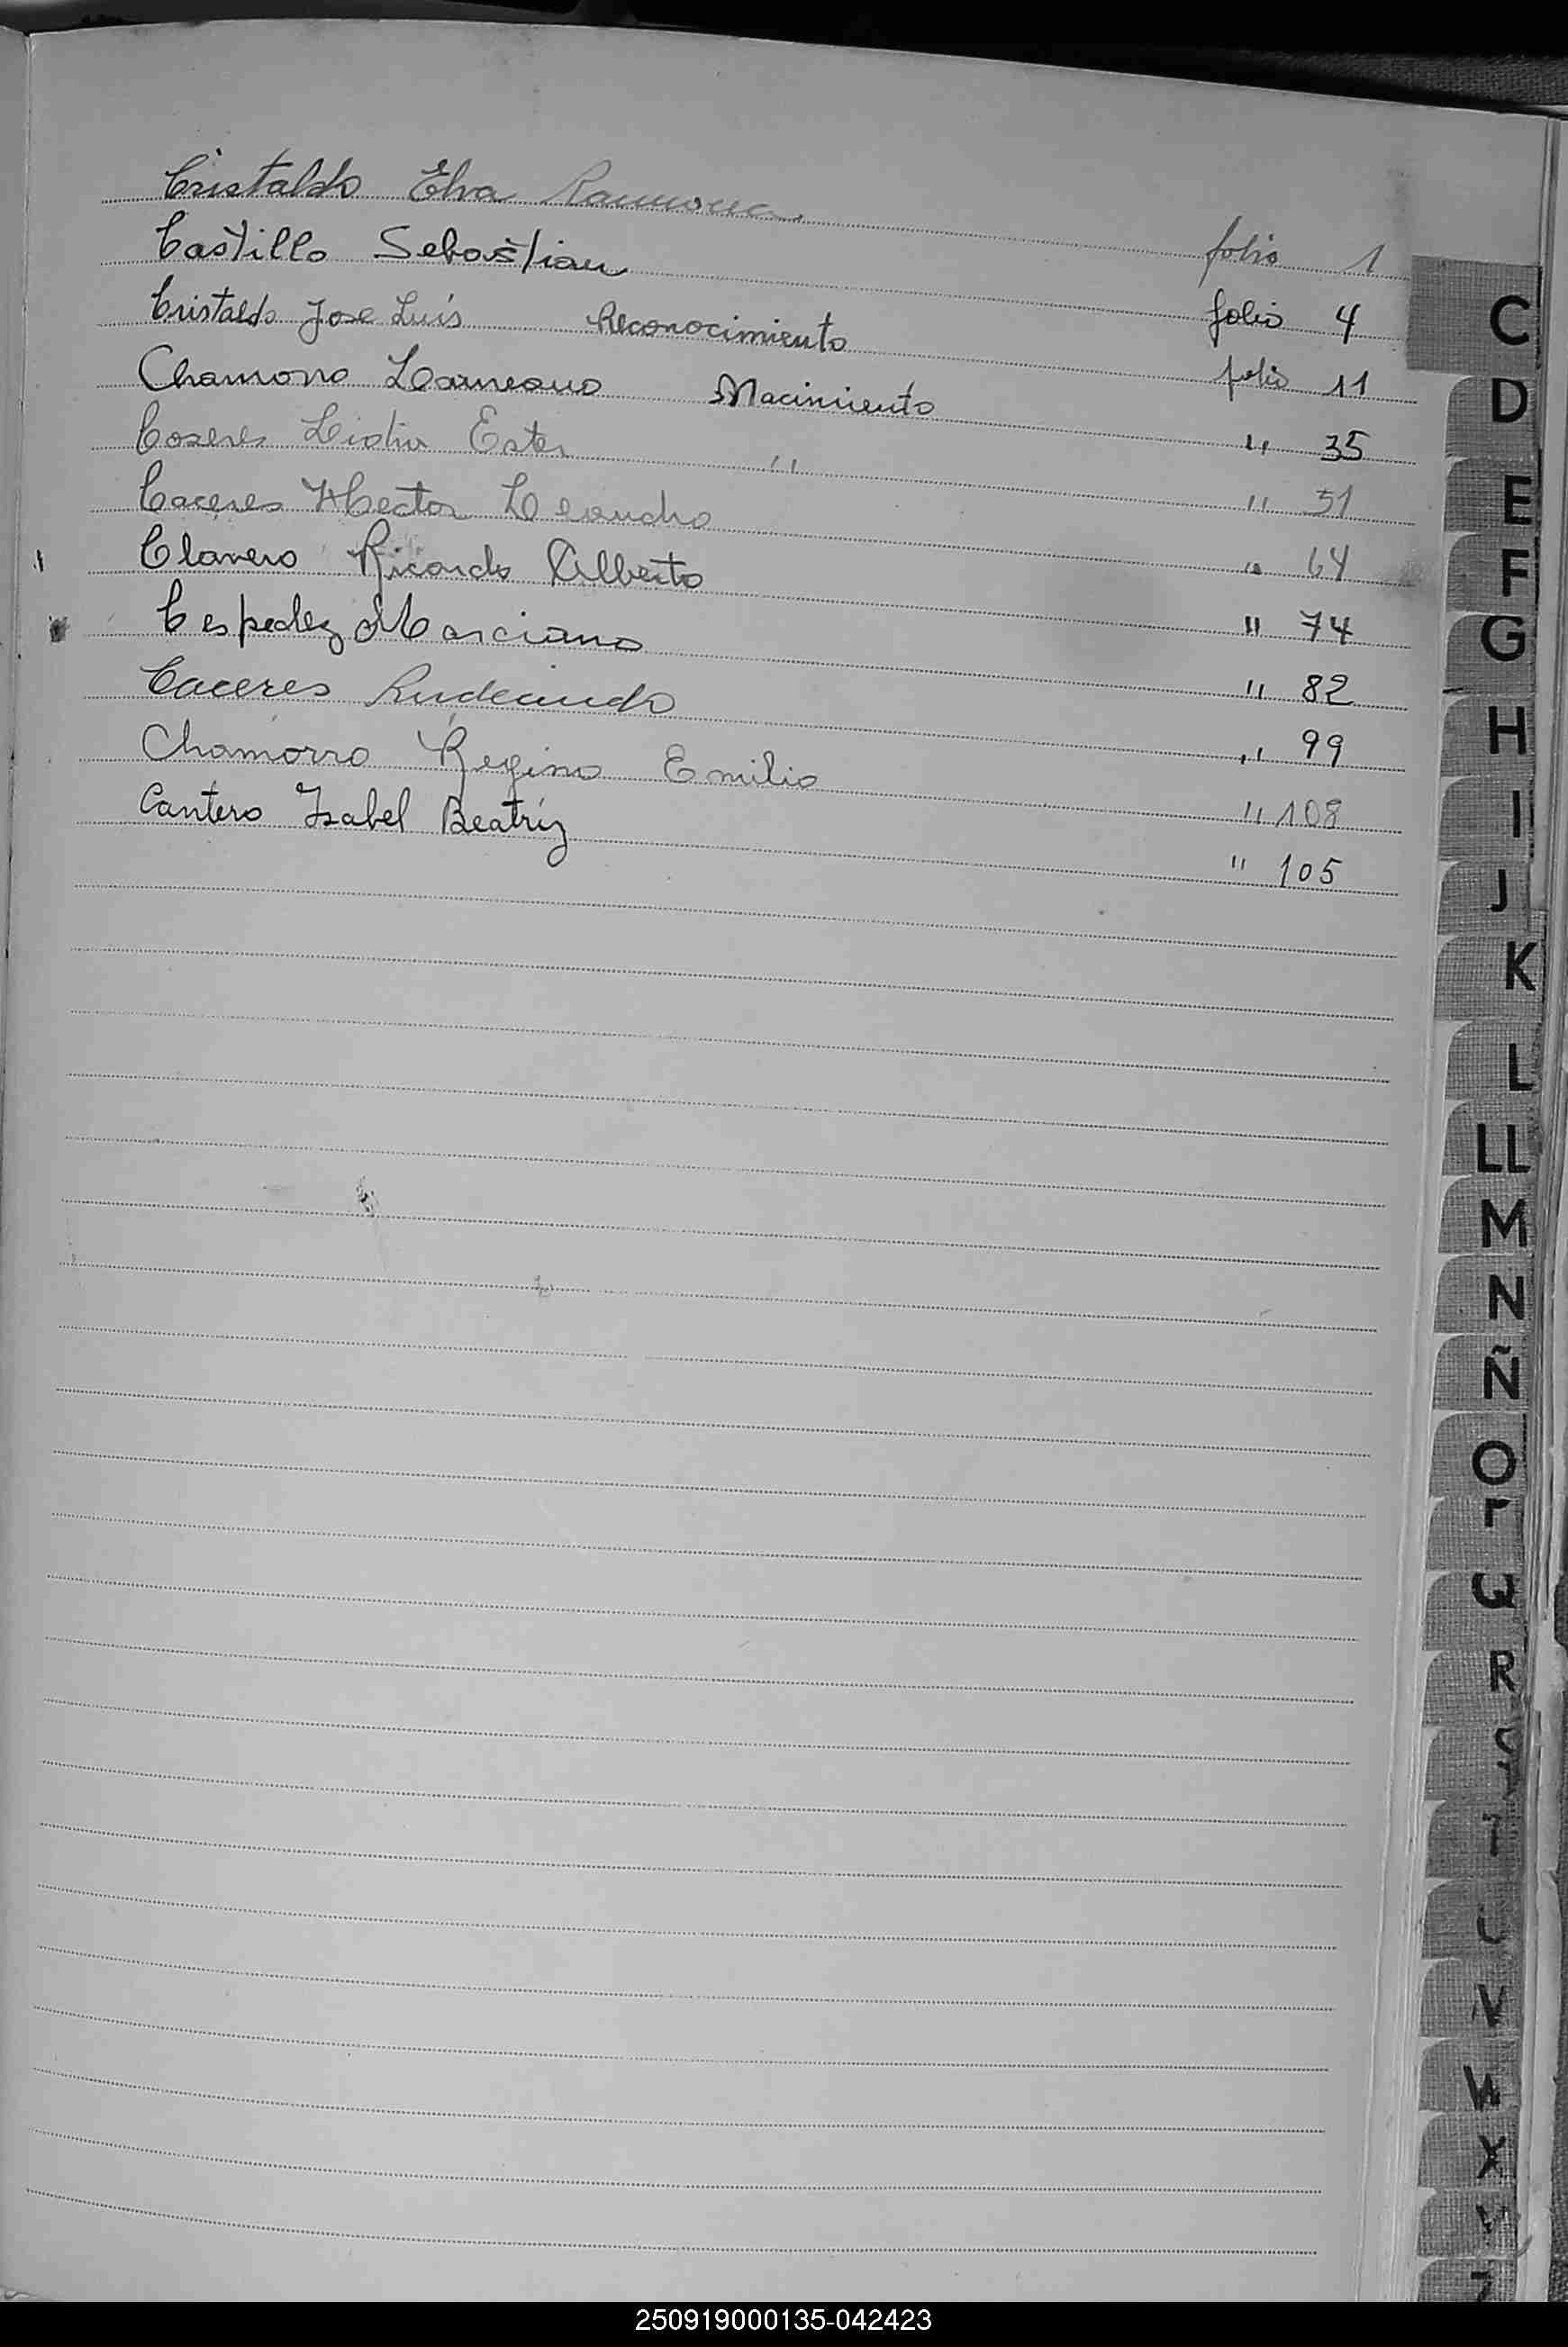 Cristaldo Elva Ramona. folio 1
Castillo Sebastian folio 4
Cristaldo Jose Luis Reconocimiento folio 11
Chamorro Nacimiento " 35
Caseres Lidia Ester " " 51
Caceres Hector Leandro " 64
Clavero Ricardo Alberto " 74
Cespedez Marciano " 82
Caceres Rudecindo " 99
Chamorro Regino Emilio " 108
Cantero Isabel Beatriz " 105
C
D
E
F
G
H
I
J
K
L
LL
M
N
Ñ
O
P
Q
R
S
T
U
V
W
X
Y
Z
250919000135-042423